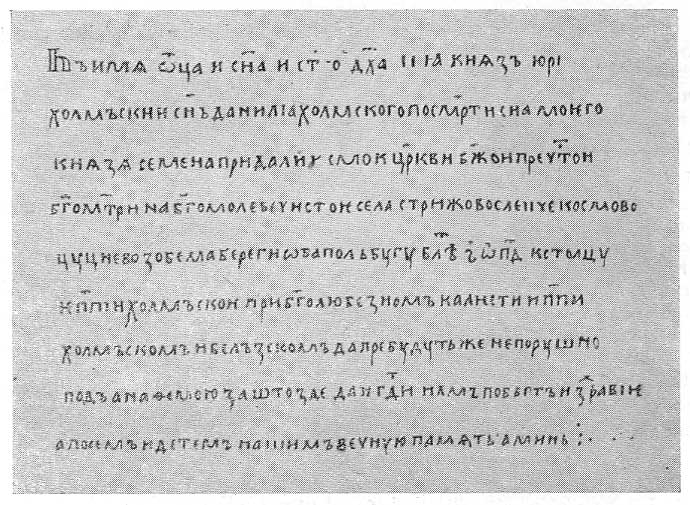 Въ имѧ ѿца и сн҃а и ст҃о дх҃а Ꙗ кнѧзъ юрі
холмъскии сн҃ъ даниліа холмского по смр҃ти сна моиго
кнѧзѧ семена придали смои цр҃кви бж҃ои преч҃тои
бг҃омт҃ри на бг҃омолебеч истои села стрижово слепче космово
цуцнево зо белма береги ѡба пол бугу бл҃ѣ ѿ п҃д к столцу
к п҃пи холмъскои при бг҃олюбезномъ калисти и п҃пи
холмъскомъ и белъзскомъ да пребудуть же непорушно
подъ анафемою за што зае даи гд҃и намъ побѣгтъ и здравіе
а по семъ и дѣтемъ нашимъ вечную памѧть аминь ⁘